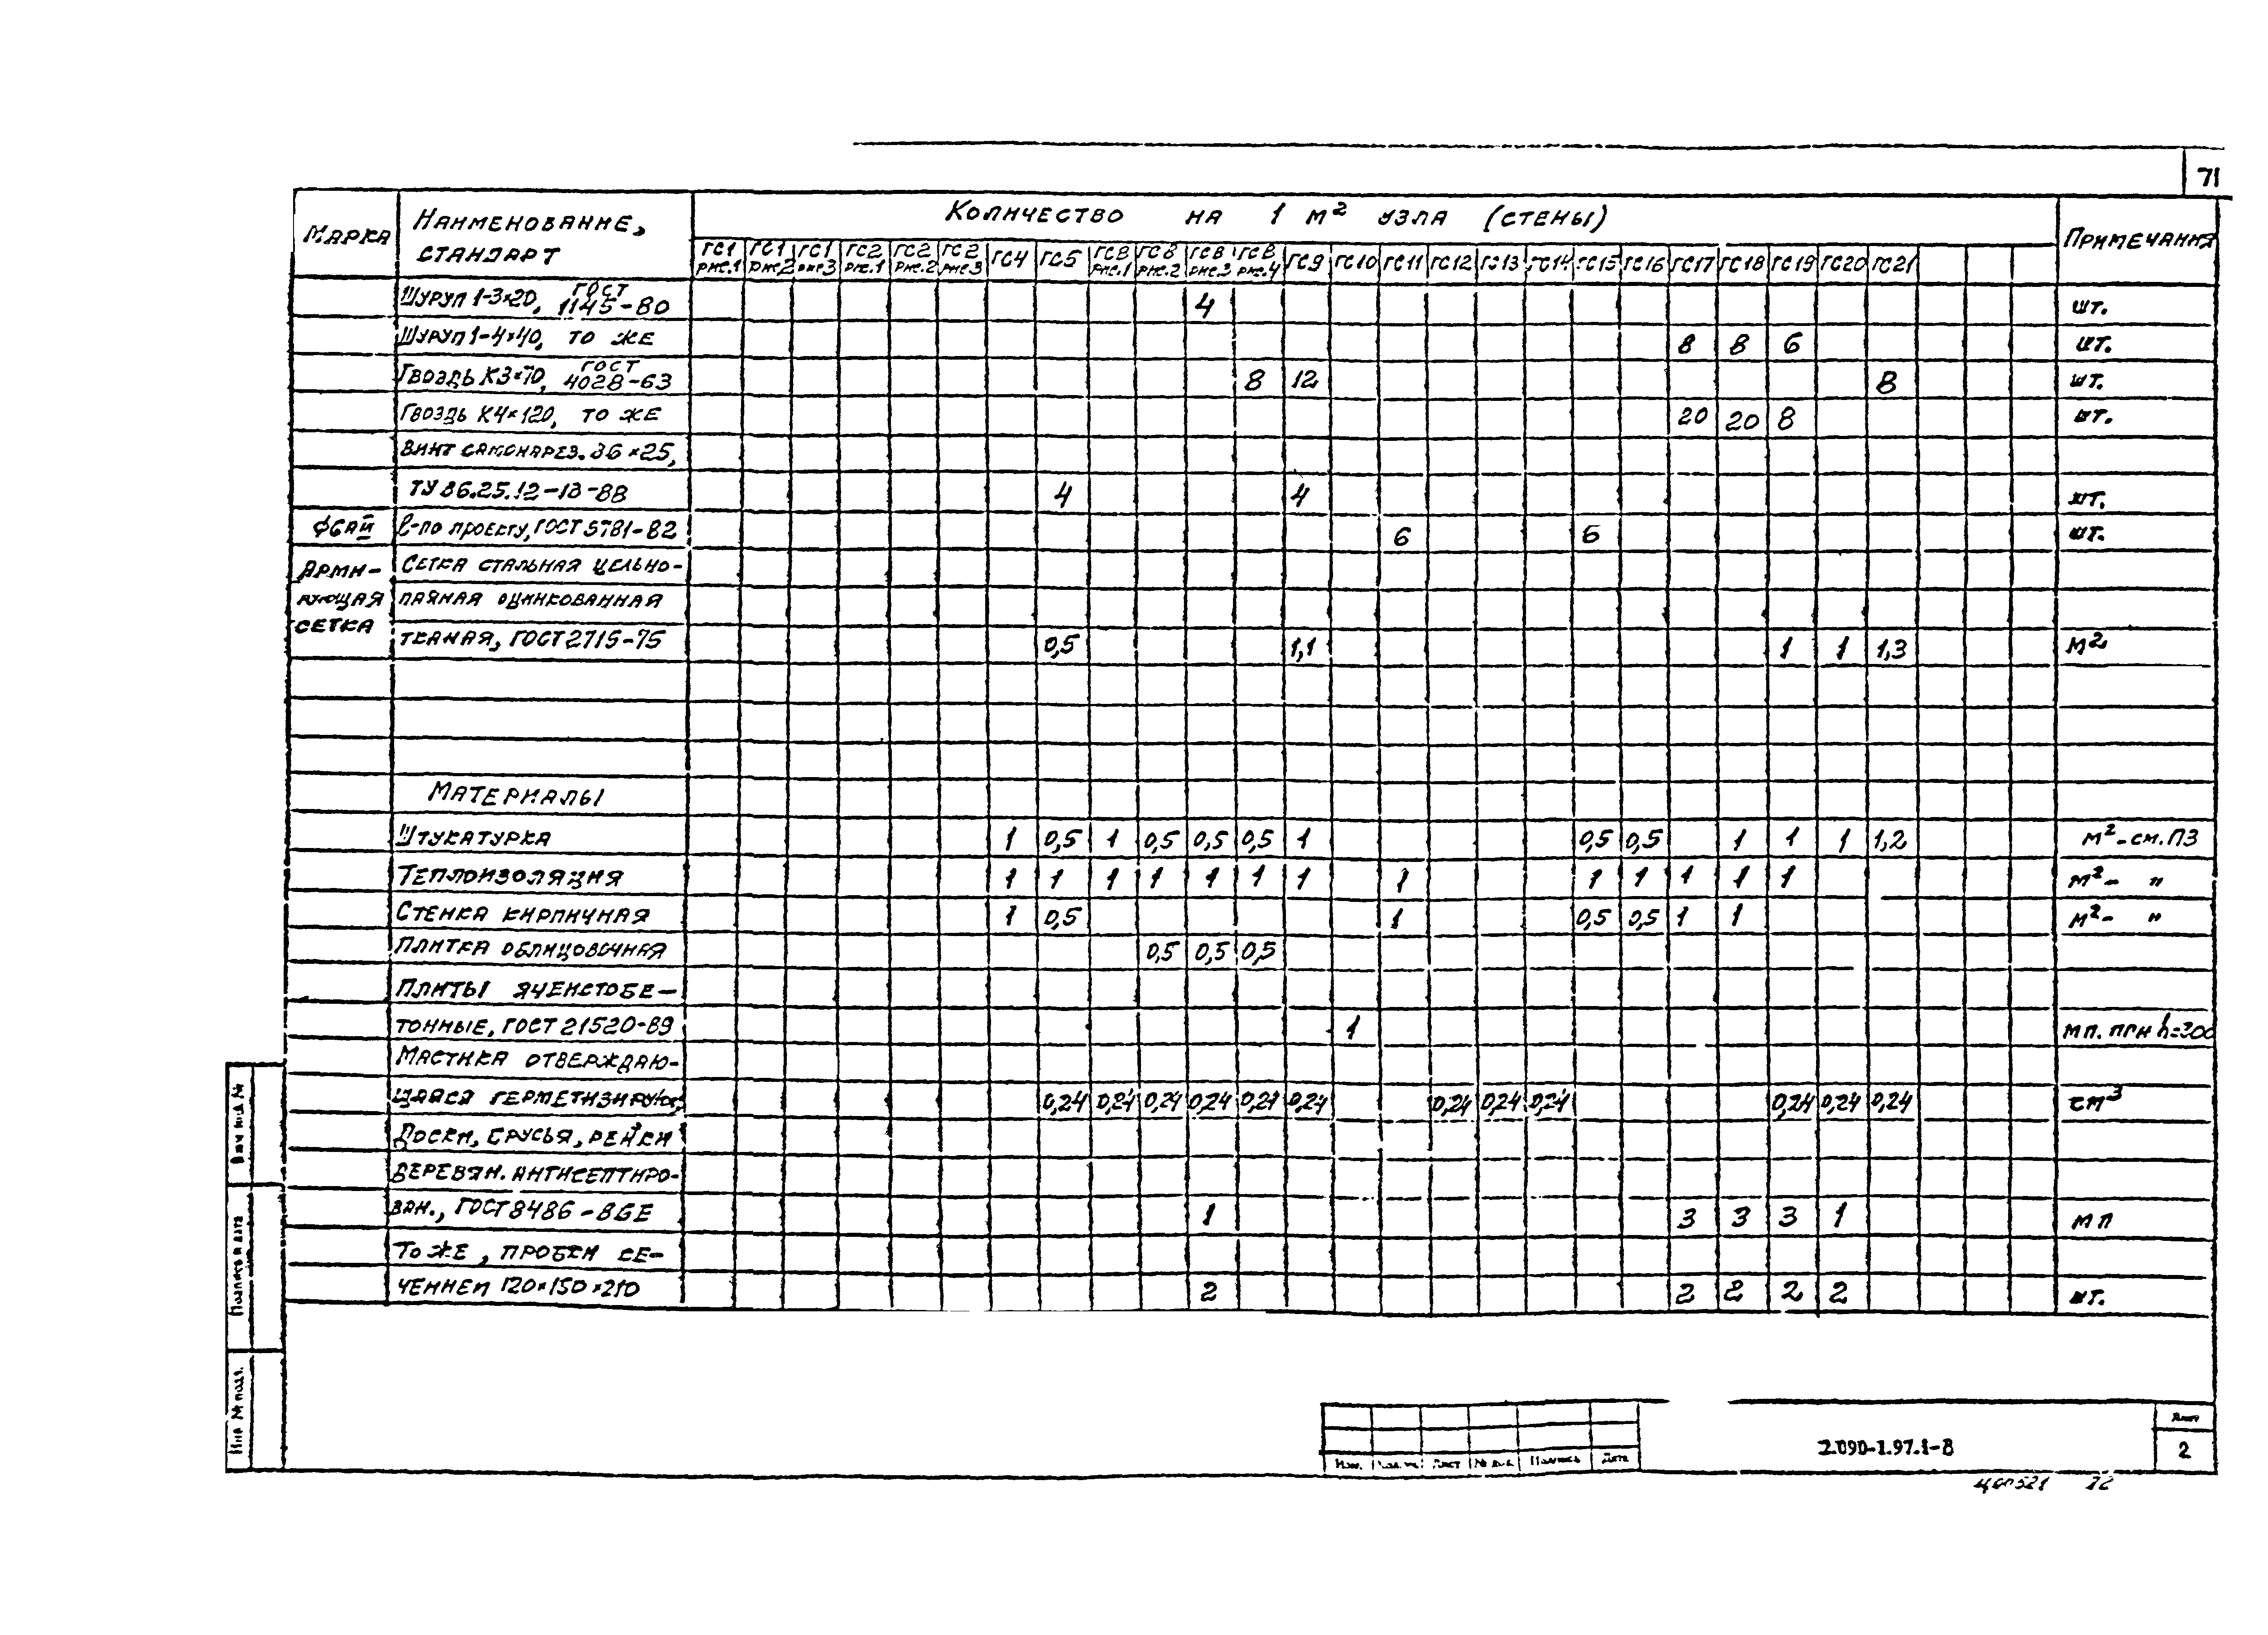 71
Марка Наименование, стандарт Количество на 1 м² узла (стены) Примечания
ГС1 рис.1 ГС1 рис2 ГС1 рис3 ГС2 рис.1 ГС2 рис.2 ГС2 рис3 ГС4 ГС5 ГС8 рис.1 ГС8 рис.2 ГС8 рис.3 ГС8 рис.4 ГС9 ГС10 ГС11 ГС12 ГС13 ГС14 ГС15 ГС16 ГС17 ГС18 ГС19 ГС20 ГС21
Шуруп 1-3×20, ГОСТ 1145-80 4 шт.
Шуруп 1-4×40, то же 8 8 6 шт.
Гвоздь К3×70, ГОСТ 4028-63 8 12 8 шт.
Гвоздь К4×120, то же 20 20 8 шт.
Винт самонарез. 36×25,
ТУ 36.25.12-13-88 4 4 шт.
ф6АII ℓ-по проекту, ГОСТ 5781-82 6 6 шт.
Арми- Сетка стальная цельно-
рующая паяная оцинкованная
сетка тканая, ГОСТ 2715-75 0,5 1,1 1 1 1,3 м²
Материалы
Штукатурка 1 0,5 1 0,5 0,5 0,5 1 0,5 0,5 1 1 1 1,2 м²-см.ПЗ
Теплоизоляция 1 1 1 1 1 1 1 1 1 1 1 1 1 м²- "
Стенка кирпичная 1 0,5 1 0,5 0,5 1 1 м²- "
Плитка облицовочная 0,5 0,5 0,5
Плиты ячеистобе-
тонные, ГОСТ 21520-89 1 мп. при h=300
Мастика отверждаю-
щаяся 0,24 0,24 0,24 0,24 0,24 0,24 0,24 0,24 0,24 0,24 0,24 0,24 см³
Доски, брусья, рейки
деревян. антисептиро-
ван., ГОСТ 8486-86Е 1 3 3 3 1 мп
То же, пробки се-
чением 120×150×210 2 2 2 2 2 шт.
Взам инв. №
Подпись и дата
Инв № подл.
Изм. Кол.уч Лист № док. Подпись Дата
2.090-1.97.1-8
Лист
2
72